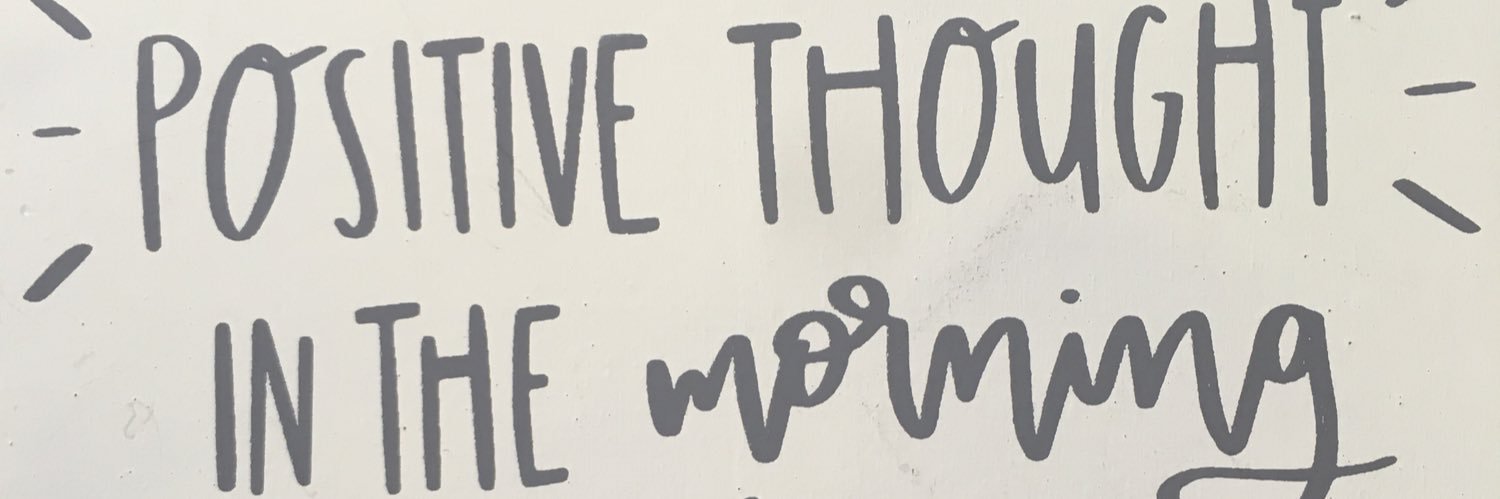 POSITIVE THOUGHT
IN THE morning